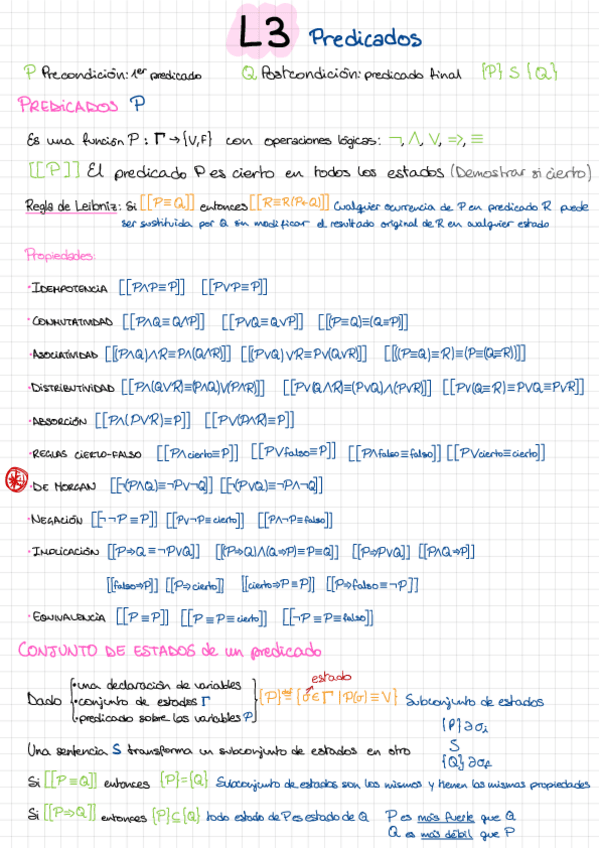 L3 Predicados
P Precondición: 1er predicado Q Postcondición: predicado final {P} S {Q}
PREDICADOS P
Es una función P: Γ→{V,F} con operaciones lógicas: ¬, ∧, ∨, =>, ≡
[[P]] El predicado P es cierto en todos los estados (Demostrar si cierto)
Regla de Leibniz: Si [[P≡Q]] entonces [[R≡R(P←Q)]] Cualquier ocurrencia de P en predicado R puede
ser sustituida por Q sin modificar el resultado original de R en cualquier estado
Propiedades:
·IDEMPOTENCIA [[P∧P≡P]] [[P∨P≡P]]
·CONMUTATIVIDAD [[P∧Q≡Q∧P]] [[P∨Q≡Q∨P]] [[(P≡Q)≡(Q≡P)]]
·ASOCIATIVIDAD [[(P∧Q)∧R≡P∧(Q∧R)]] [[(P∨Q)∨R≡P∨(Q∨R)]] [[((P≡Q)≡R)≡(P≡(Q≡R))]]
·DISTRIBUTIVIDAD [[P∧(Q∨R)≡(P∧Q)∨(P∧R)]] [[P∨(Q∧R)≡(P∨Q)∧(P∨R)]] [[P∨(Q≡R)≡P∨Q≡P∨R]]
·ABSORCIÓN [[P∧(P∨R)≡P]] [[P∨(P∧R)≡P]]
·REGLAS CIERTO-FALSO [[P∧cierto≡P]] [[P∨falso≡P]] [[P∧falso≡falso]] [[P∨cierto≡cierto]]
·DE MORGAN [[¬(P∧Q)≡¬P∨¬Q]] [[¬(P∨Q)≡¬P∧¬Q]]
·NEGACIÓN [[¬¬P≡P]] [[P∨¬P≡cierto]] [[P∧¬P≡falso]]
·IMPLICACIÓN [[P⇒Q≡¬P∨Q]] [[(P⇒Q)∧(Q⇒P)≡P≡Q]] [[P⇒P∨Q]] [[P∧Q⇒P]]
[[falso⇒P]] [[P⇒cierto]] [[cierto⇒P≡P]] [[P⇒falso≡¬P]]
·EQUIVALENCIA [[P≡P]] [[P≡P≡cierto]] [[¬P≡P≡falso]]
CONJUNTO DE ESTADOS de un predicado
estado
·una declaración de variables
Dado ·conjunto de estados Γ {P} def= {σ∈Γ | P(σ)≡V} Subconjunto de estados
·predicado sobre las variables P
{P}∋σi
Una sentencia S transforma un subconjunto de estados en otro S
{Q}∋σf
Si [[P≡Q]] entonces {P}={Q} Subconjunto de estados son los mismos y tienen las mismas propiedades
Si [[P⇒Q]] entonces {P}⊆{Q} todo estado de P es estado de Q P es más fuerte que Q
Q es más débil que P